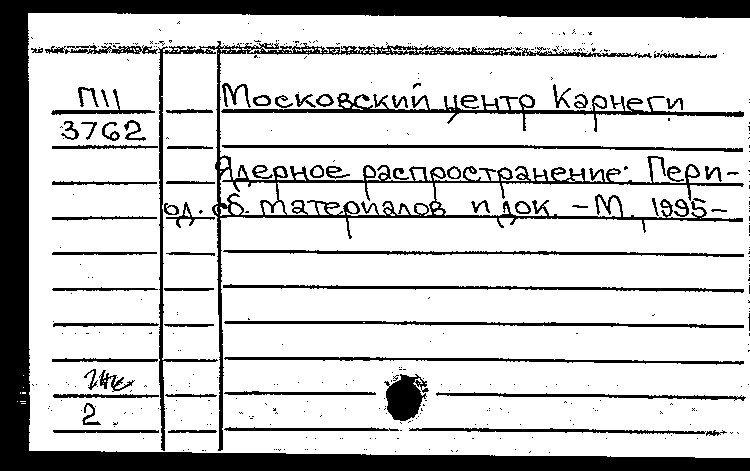 П11 Московский центр Карнеги
3762
Ядерное распространение: Пери-
од. сб. материалов и док. – М., 1995–
2